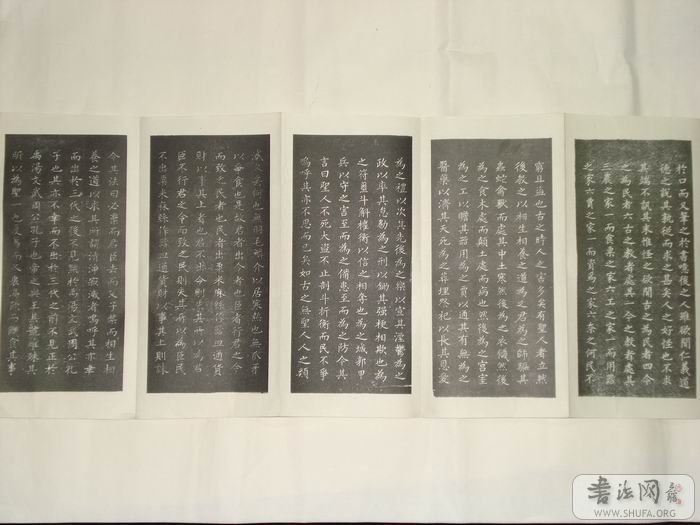 於口而又筆之於書噫後之人雖欲聞仁義道
德之說其孰從而求之甚矣人之好怪也不求
其端不訊其末惟怪之欲聞古之為民者四今
之為民者六古之教者處其一今之教者處其
三農之家一而食粟之家六工之家一而用器
之家六賈之家一而資焉之家六奈之何民不
窮且盜也古之時人之害多矣有聖人者立然
後教之以相生相養之道為之君為之師驅其
蟲蛇禽獸而處其中土寒然後為之衣饑然後
為之食木處而顛土處而病也然後為之宮室
為之工以贍其器用為之賈以通其有無為之
醫藥以濟其夭死為之葬埋祭祀以長其恩愛
為之禮以次其先後為之樂以宣其湮鬱為之
政以率其怠勌為之刑以鋤其强梗相欺也為
之符璽斗斛權衡以信之相奪也為之城郭甲
兵以守之害至而為之備患至而為之防今其
言曰聖人不死大盜不止剖斗折衡而民不爭
嗚呼其亦不思而已矣如古之無聖人人之類
滅久矣何也無羽毛鱗介以居寒熱也無爪牙
以爭食也是故君者出令者也臣者行君之令
而致之民者也民者出粟米麻絲作器皿通貨
財以事其上者也君不出令則失其所以為君
臣不行君之令而致之民則失其所以為臣民
不出粟米麻絲作器皿通貨財以事其上則誅
今其法曰必棄而君臣去而父子禁而相生相
養之道以求其所謂清淨寂滅者嗚呼其亦幸
而出於三代之後不見黜於禹湯文武周公孔
子也其亦不幸而不出於三代之前不見正於
禹湯文武周公孔子也帝之與王其號雖殊其
所以為聖一也夏葛而冬裘渴飲而饑食其事
書法网
WWW.SHUFA.ORG